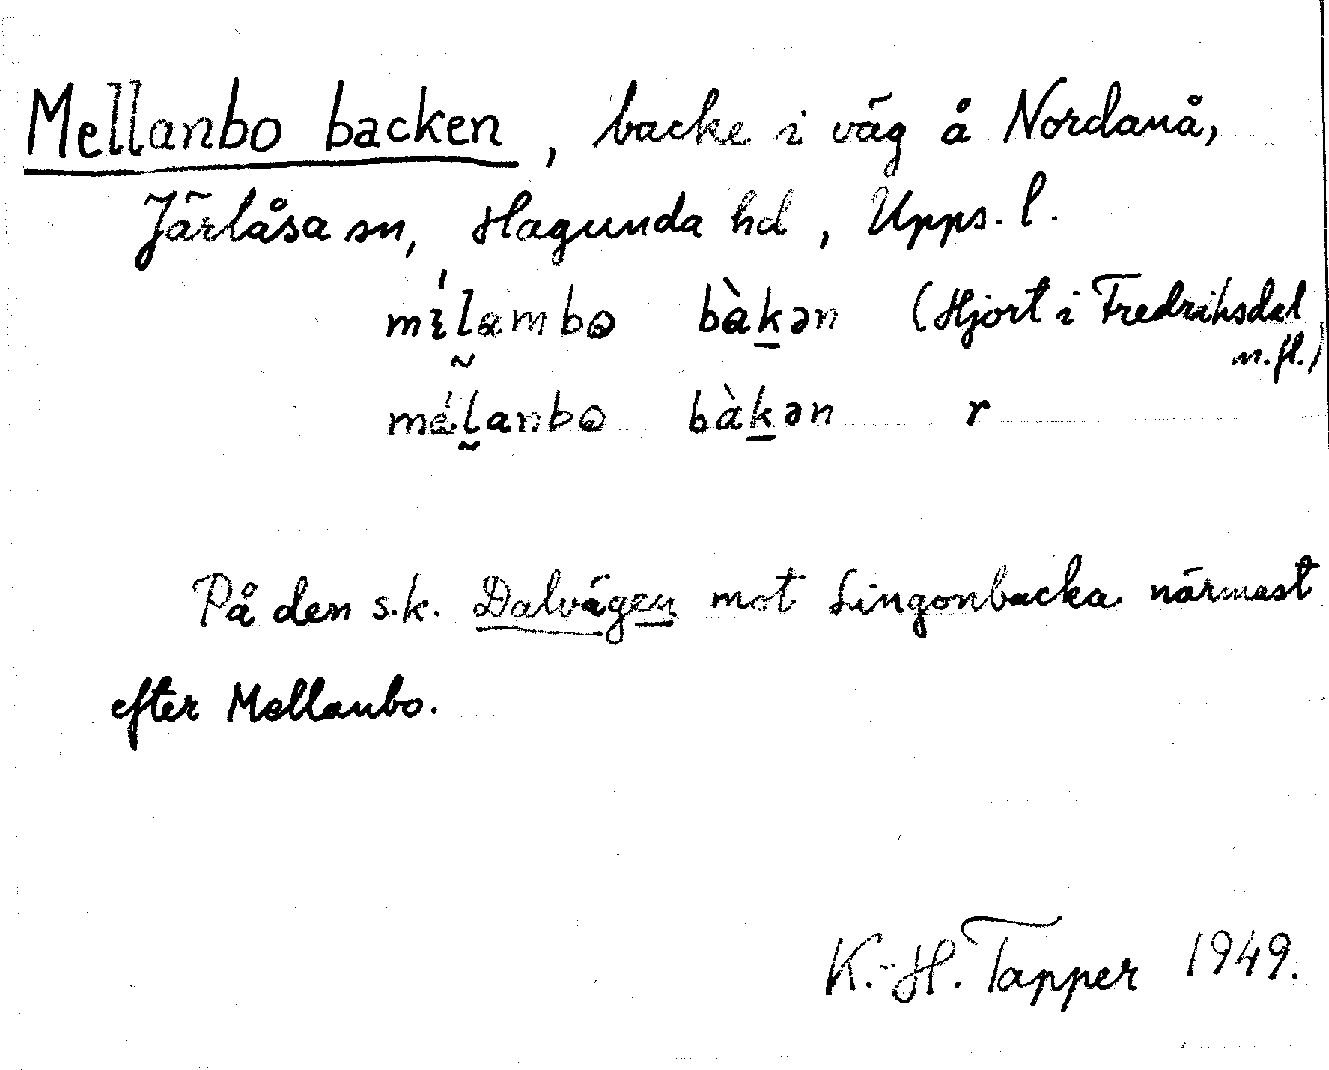 Mellanbo backen, backe i väg å Nordanå,
Järlåsa sn, Hagunda hd, Upps. l.
mílambo bàkən (Hjort i Fredriksdal
m.fl.)
mélanbo bàkən r
På den s.k. Dalvägen mot Lingonbacka närmast
efter Mellanbo.
K.-H. Tapper 1949.